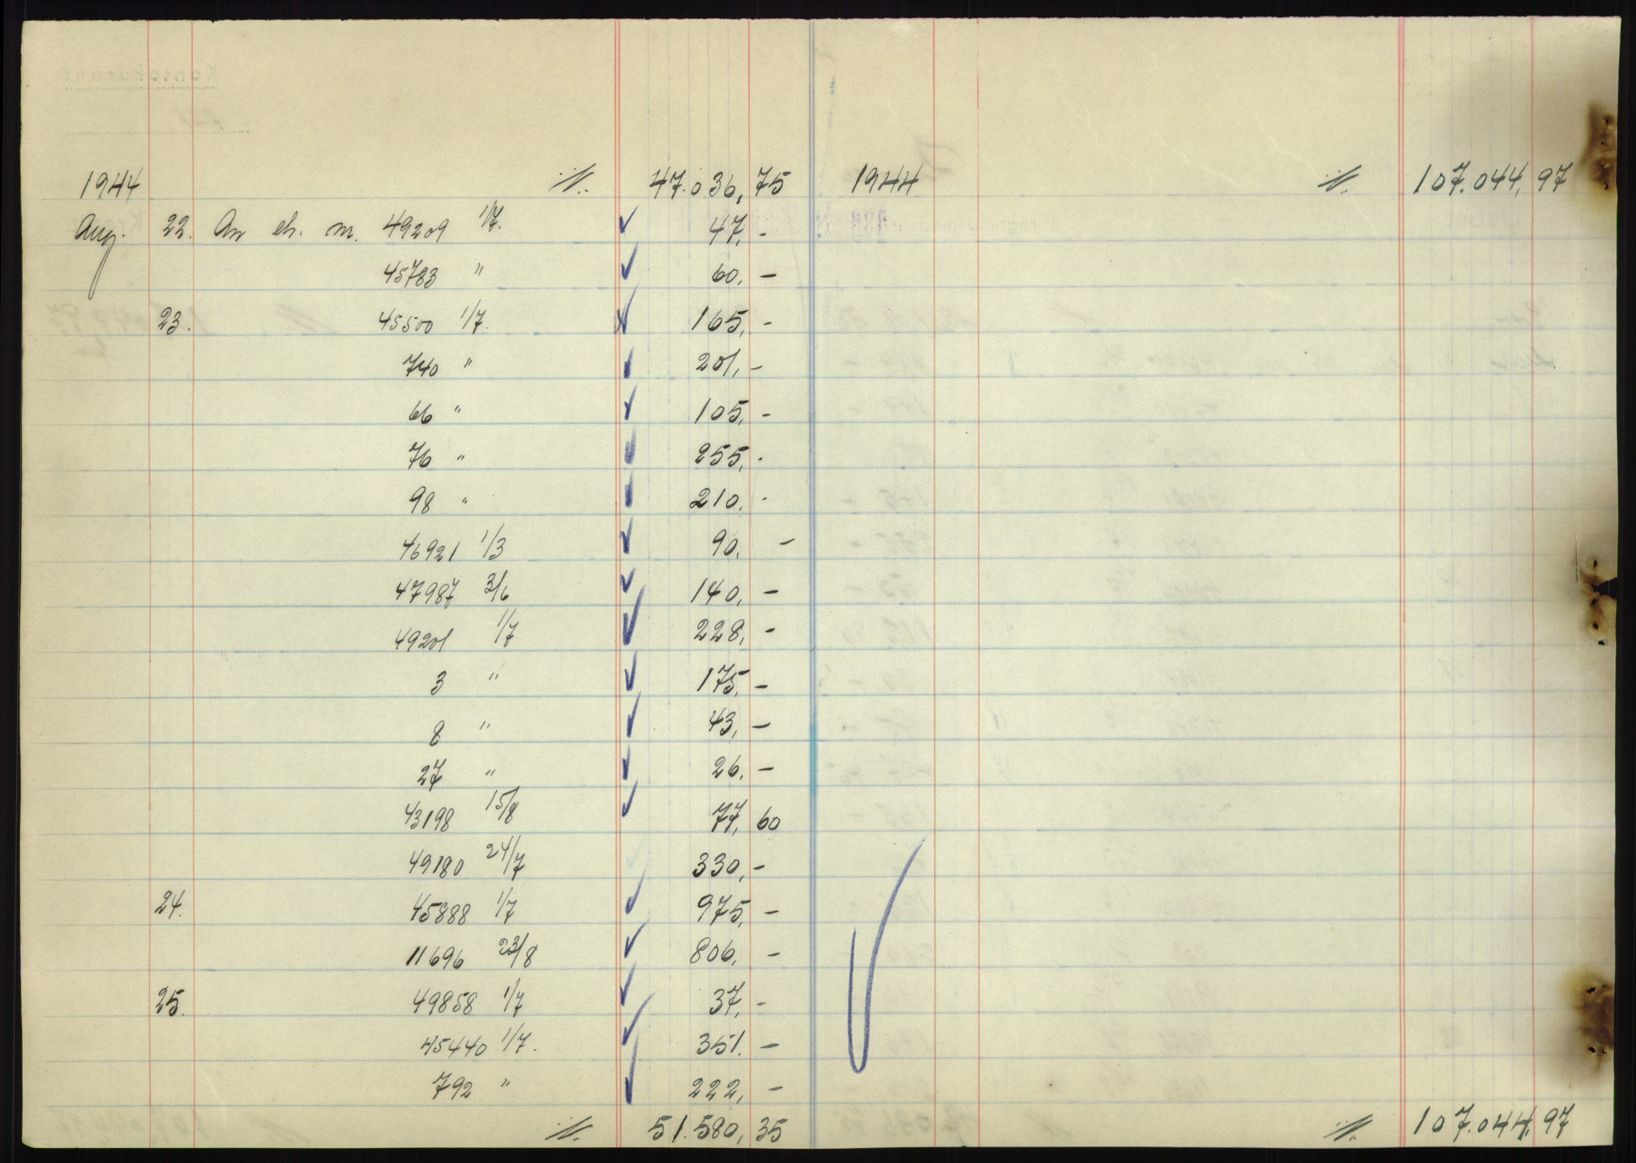 1944 ⁒ 47.036,75 1944 ⁒ 107.044,97
Aug. 22. An ch. m. 49209 1/7. 47,-
45783 " 60,-
23. 45500 1/7. 165,-
740 " 201,-
66 " 105,-
76 " 255,-
98 " 210,-
46921 1/3 90,-
47987 3/6 140,-
49201 1/7 228,-
3 " 175,-
8 " 43,-
27 " 26,-
43198 15/8 77,60
49180 24/7 330,-
24. 45888 1/7 975,-
11696 23/8 806,-
25. 49858 1/7 37,-
45440 1/7. 351.-
792 " 222,-
⁒ 51.580,35 ⁒ 107.044,97